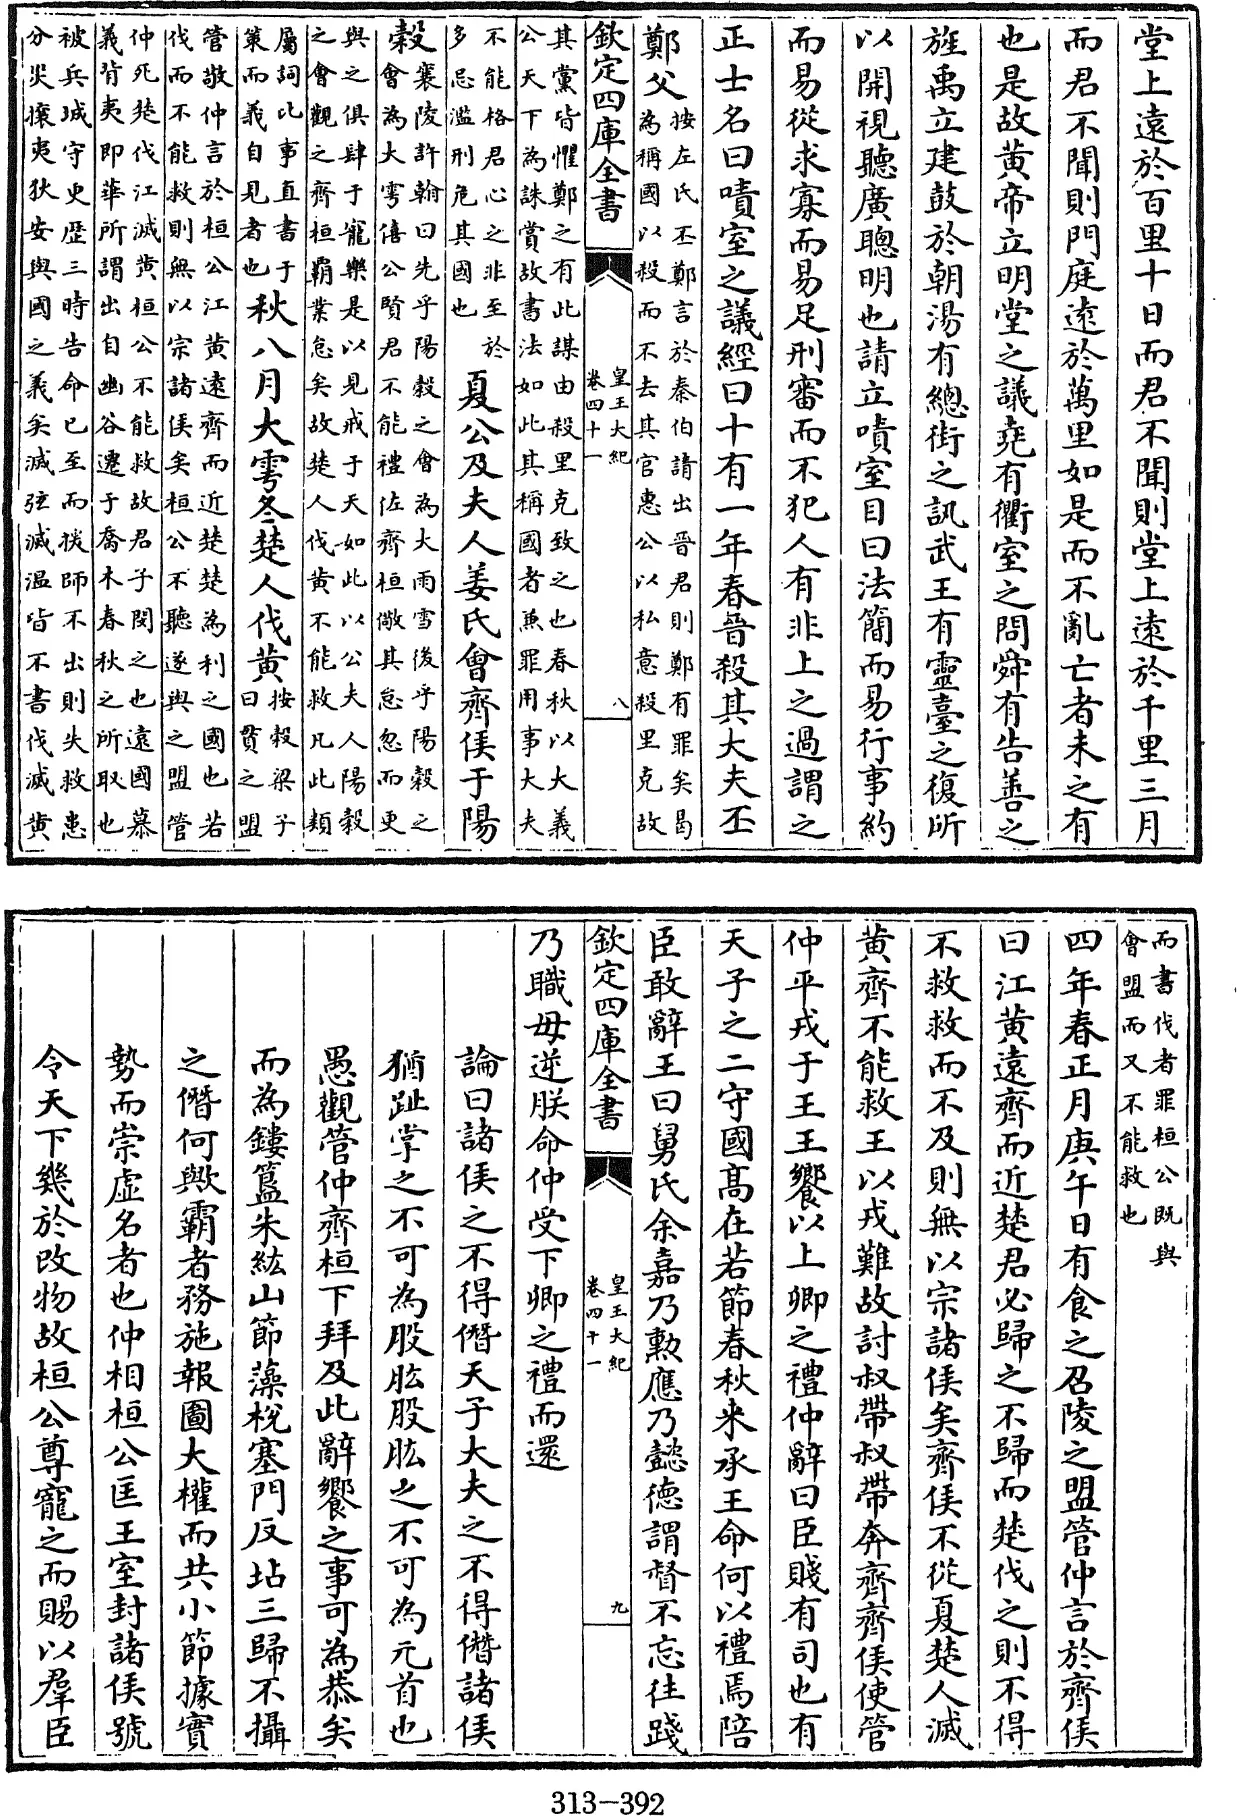 堂上遠於百里十日而君不聞則堂上遠於千里三月
而君不聞則門庭遠於萬里如是而不亂亡者未之有
也是故黃帝立明堂之議堯有衢室之問舜有告善之
旌禹立建鼓於朝湯有總街之訊武王有靈臺之復所
以開視聽廣聰明也請立嘖室目曰法簡而易行事約
而易從求寡而易足刑審而不犯人有非上之過謂之
正士名曰嘖室之議經曰十有一年春晉殺其大夫丕
鄭父
按左氏丕鄭言於秦伯請出晉君則鄭有罪矣曷
為稱國以殺而不去其官惠公以私意殺里克故
欽定四庫全書
皇王大紀
卷四十一
八
其黨皆懼鄭之有此謀由殺里克致之也春秋以大義
公天下為誅賞故書法如此其稱國者兼罪用事大夫
不能格君心之非至於
多忌濫刑危其國也
夏公及夫人姜氏會齊侯于陽
穀
襄陵許翰曰先乎陽穀之會為大雨雪後乎陽穀之
會為大雩僖公賢君不能禮佐齊桓儆其怠忽而更
與之俱肆于寵樂是以見戒于天如此以公夫人陽穀
之會觀之齊桓霸業怠矣故楚人伐黃不能救凡此類
屬詞比事直書于
策而義自見者也
秋八月大雩冬楚人伐黃
按榖梁子
曰貫之盟
管敬仲言於桓公江黃遠齊而近楚楚為利之國也若
伐而不能救則無以宗諸侯矣桓公不聽遂與之盟管
仲死楚伐江滅黃桓公不能救故君子閔之也遠國慕
義背夷即華所謂出自幽谷遷于喬木春秋之所取也
被兵城守更歷三時告命已至而援師不出則失救患
分災攘夷狄安與國之義矣滅弦滅温皆不書伐滅黃
而書伐者罪桓公既與
會盟而又不能救也
四年春正月庚午日有食之召陵之盟管仲言於齊侯
曰江黃遠齊而近楚君必歸之不歸而楚伐之則不得
不救救而不及則無以宗諸侯矣齊侯不從夏楚人滅
黃齊不能救王以戎難故討叔帶叔帶奔齊齊侯使管
仲平戎于王王饗以上卿之禮仲辭曰臣賤有司也有
天子之二守國高在若節春秋來承王命何以禮焉陪
臣敢辭王曰舅氏余嘉乃勲應乃懿德謂督不忘往踐
欽定四庫全書
皇王大紀
卷四十一
九
乃職毋逆朕命仲受下卿之禮而還
論曰諸侯之不得僭天子大夫之不得僭諸侯
猶趾掌之不可為股肱股肱之不可為元首也
愚觀管仲齊桓下拜及此辭饗之事可為恭矣
而為鏤簋朱紘山節藻梲塞門反坫三歸不攝
之僭何歟霸者務施報圖大權而共小節據實
勢而崇虛名者也仲相桓公匡王室封諸侯號
令天下幾於改物故桓公尊寵之而賜以羣臣
313-392